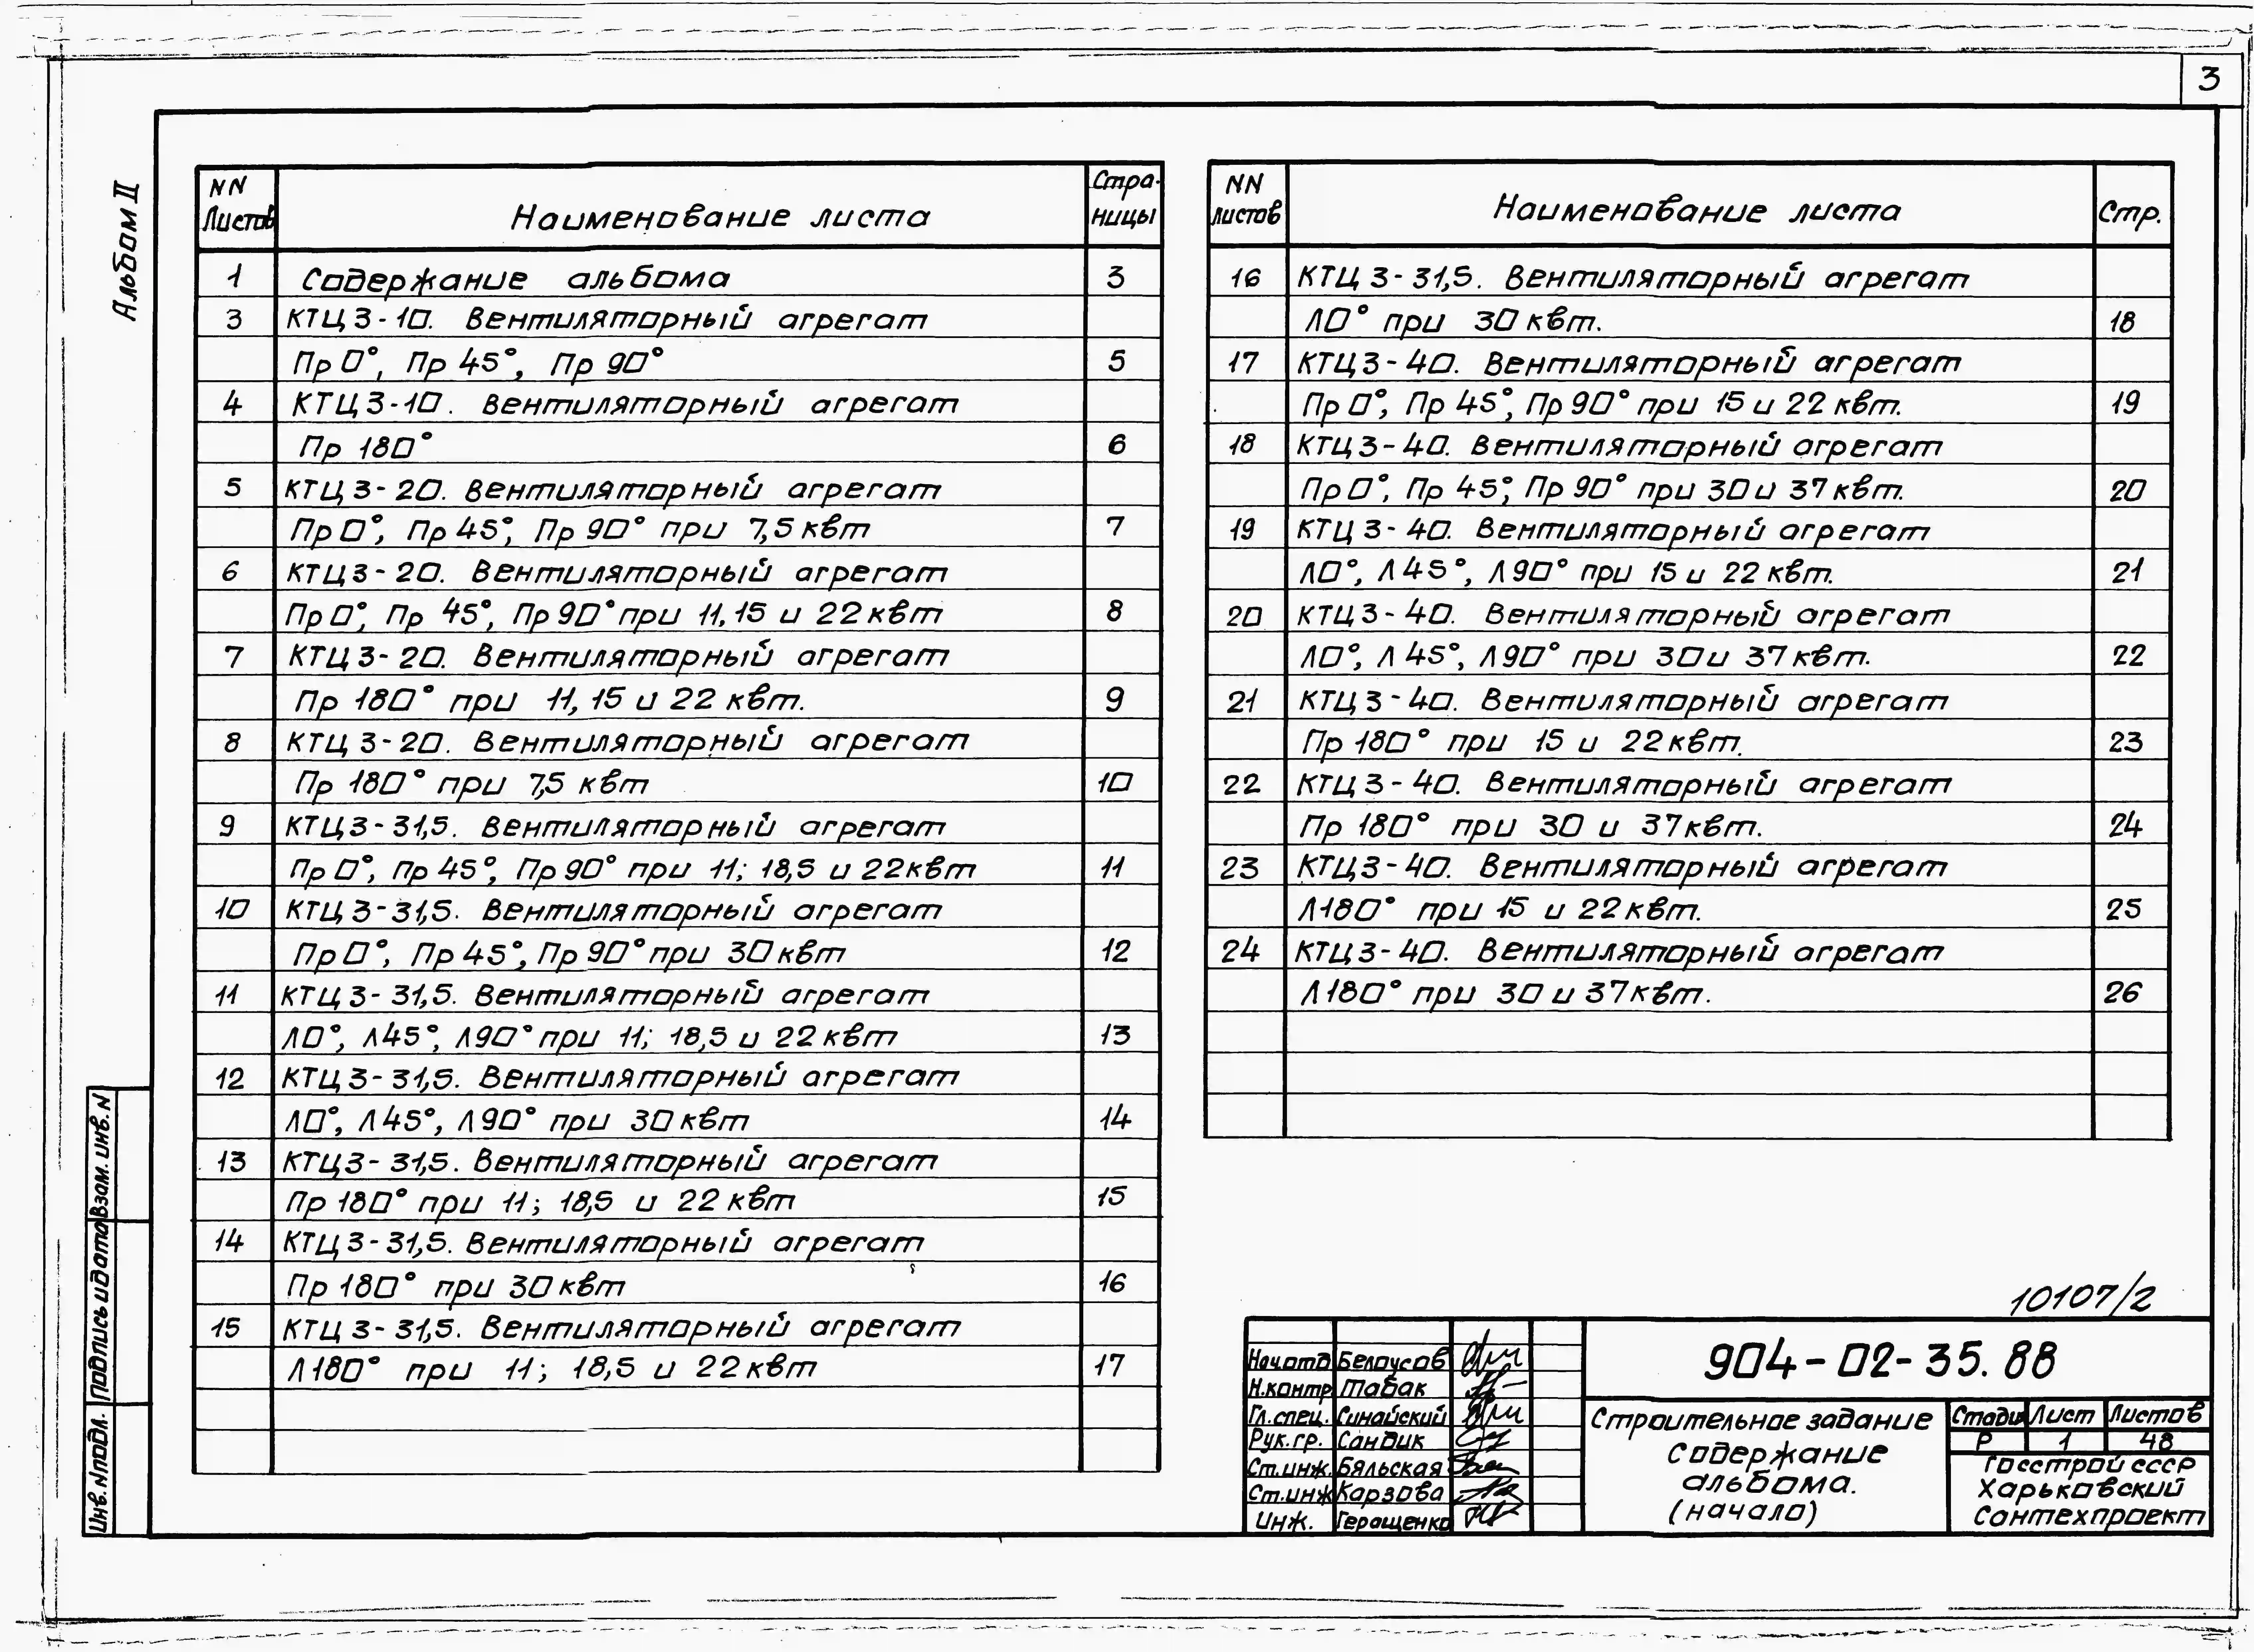 3
Альбом II
NN Листов Наименование листа Стра-ницы
1 Содержание альбома 3
3 КТЦ3-10. Вентиляторный агрегат
Пр 0°, Пр 45°, Пр 90° 5
4 КТЦ3-10. Вентиляторный агрегат
Пр 180° 6
5 КТЦ3-20. Вентиляторный агрегат
Пр 0°, Пр 45°, Пр 90° при 7,5 квт 7
6 КТЦ3-20. Вентиляторный агрегат
Пр 0°, Пр 45°, Пр 90° при 11, 15 и 22 квт 8
7 КТЦ3-20. Вентиляторный агрегат
Пр 180° при 11, 15 и 22 квт. 9
8 КТЦ3-20. Вентиляторный агрегат
Пр 180° при 7,5 квт 10
9 КТЦ3-31,5. Вентиляторный агрегат
Пр 0°, Пр 45°, Пр 90° при 11; 18,5 и 22 квт 11
10 КТЦ3-31,5. Вентиляторный агрегат
Пр 0°, Пр 45°, Пр 90° при 30 квт 12
11 КТЦ3-31,5. Вентиляторный агрегат
Л 0°, Л 45°, Л 90° при 11; 18,5 и 22 квт 13
12 КТЦ3-31,5. Вентиляторный агрегат
Л 0°, Л 45°, Л 90° при 30 квт 14
13 КТЦ3-31,5. Вентиляторный агрегат
Пр 180° при 11; 18,5 и 22 квт 15
14 КТЦ3-31,5. Вентиляторный агрегат
Пр 180° при 30 квт 16
15 КТЦ3-31,5. Вентиляторный агрегат
Л 180° при 11; 18,5 и 22 квт 17
NN листов Наименование листа Стр.
16 КТЦ3-31,5. Вентиляторный агрегат
Л 0° при 30 квт. 18
17 КТЦ3-40. Вентиляторный агрегат
Пр 0°, Пр 45°, Пр 90° при 15 и 22 квт. 19
18 КТЦ3-40. Вентиляторный агрегат
Пр 0°, Пр 45°, Пр 90° при 30 и 37 квт. 20
19 КТЦ3-40. Вентиляторный агрегат
Л 0°, Л 45°, Л 90° при 15 и 22 квт. 21
20 КТЦ3-40. Вентиляторный агрегат
Л 0°, Л 45°, Л 90° при 30 и 37 квт. 22
21 КТЦ3-40. Вентиляторный агрегат
Пр 180° при 15 и 22 квт. 23
22 КТЦ3-40. Вентиляторный агрегат
Пр 180° при 30 и 37 квт. 24
23 КТЦ3-40. Вентиляторный агрегат
Л 180° при 15 и 22 квт. 25
24 КТЦ3-40. Вентиляторный агрегат
Л 180° при 30 и 37 квт. 26
10107/2
904-02-35.88
Нач.отд Белоусов
Н.контр Табак
Гл.спец. Синайский
Рук.гр. Сандик
Ст.инж. Бяльская
Ст.инж Карзова
Инж. Геращенко
Строительное задание
Содержание
альбома.
(начало)
Стадия Лист Листов
Р 1 48
Госстрой СССР
Харьковский
Сантехпроект
Взам. инв. N
Подпись и дата
Инв. N подл.